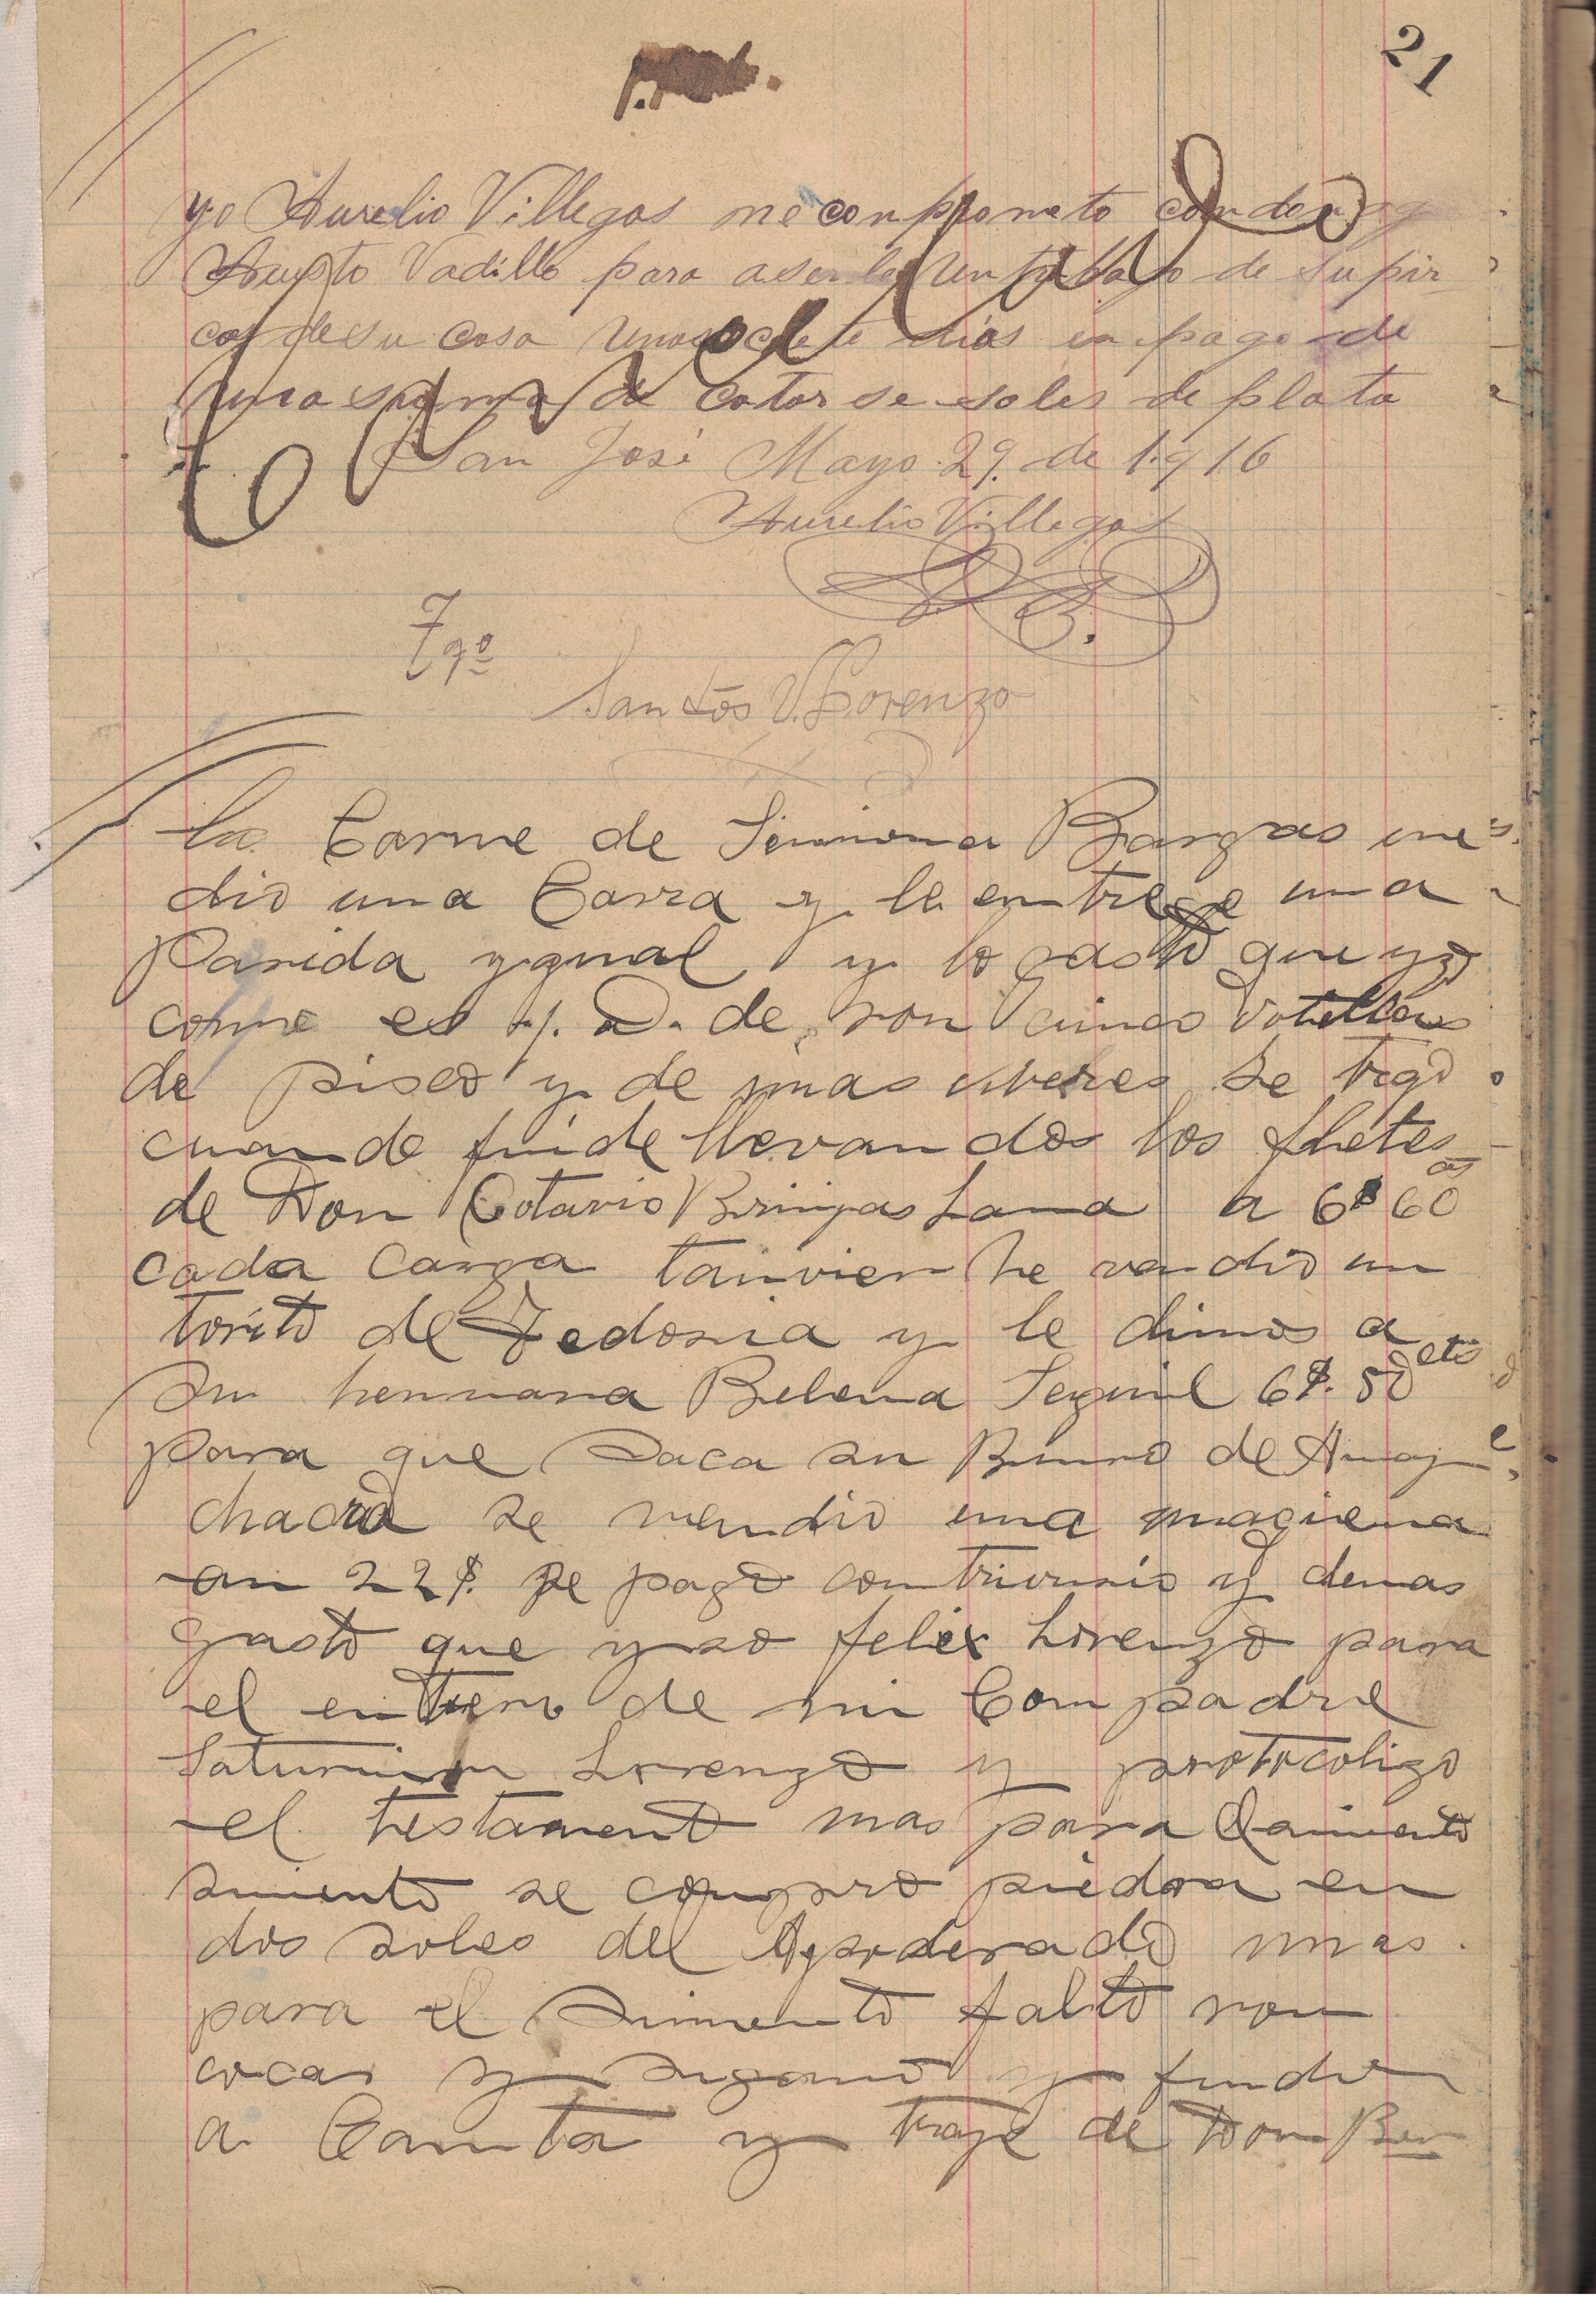 21
yo Aurelio Villegas me conpprometo con don
Austo Vadillo para aserle un trabajo de su pir
cas de su casa unos siete dias en pago de
una suma de catorse soles de plata
San José Mayo 29. de 1.916
Aurelio Villegas
Tgo
Santos V. Lorenzo
La Carne de Simiona Bargas me
dio una Carga y le entrege una
Parida ygual y lo gasto que yzo
come es y. D. de son cinco Votellas
de pisco y de mas viveres se trajo
cuando fuide llevandos los fletes
de Don Cotavio Bringas Lama a 6$ 60
cada Carga tanvien he vendio un
torito de Fedosia y le dimos a
su hermana Belena 6$. 50 cts
para que saca su Burro de Auaj
chacra se vendio una
an 22$. se pago contrivusio y demas
gasto que yzo felix Lorenzo para
el entiero de mi Compadre
Saturnino Lorenzo y protocolizo
el testamento mas para
simento se compro piedra en
dos soles del Apoderado mas.
para el Simento falto ron
cocas y sigarro y fuidi
a Canta y traje de Don Ben